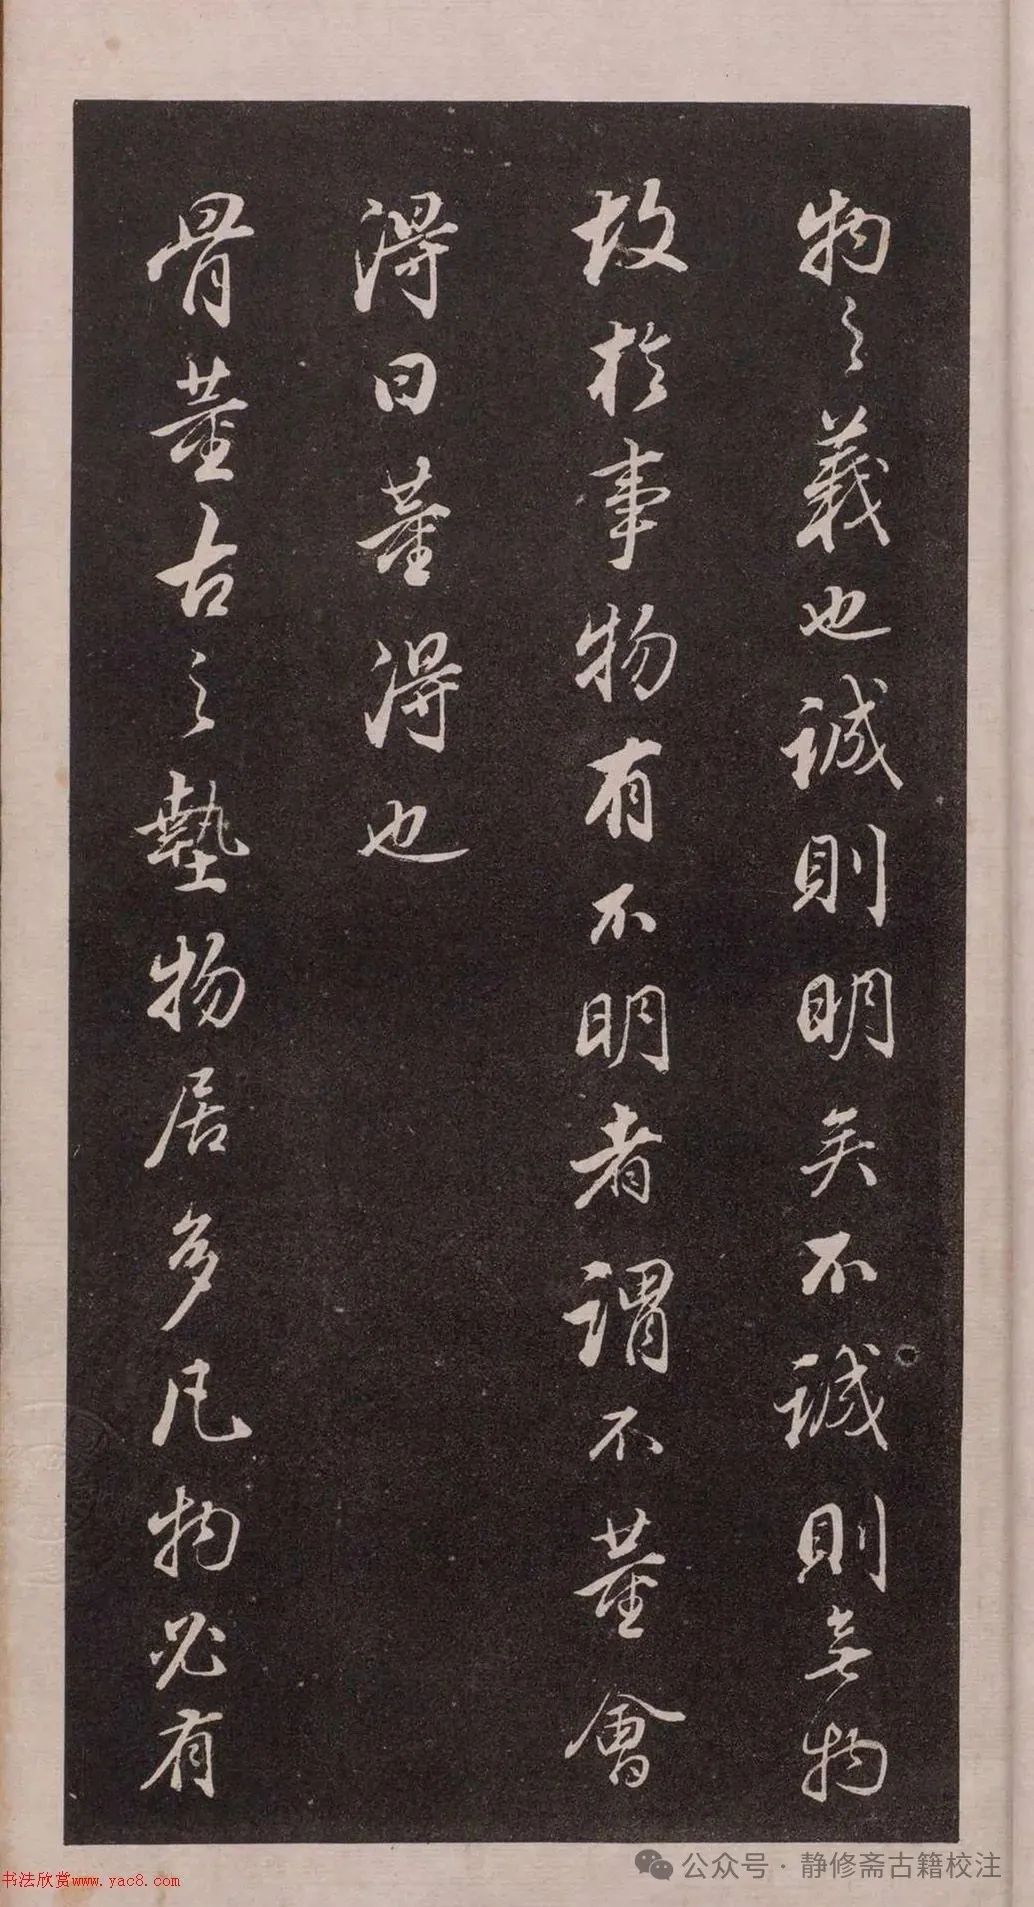 物之義也誠則明矣不誠則無物
故於事物有不明者謂不董會
得曰董得也
骨董古之墊物居多凡物必有
书法欣赏www.yac8.com
公众号·静修斋古籍校注